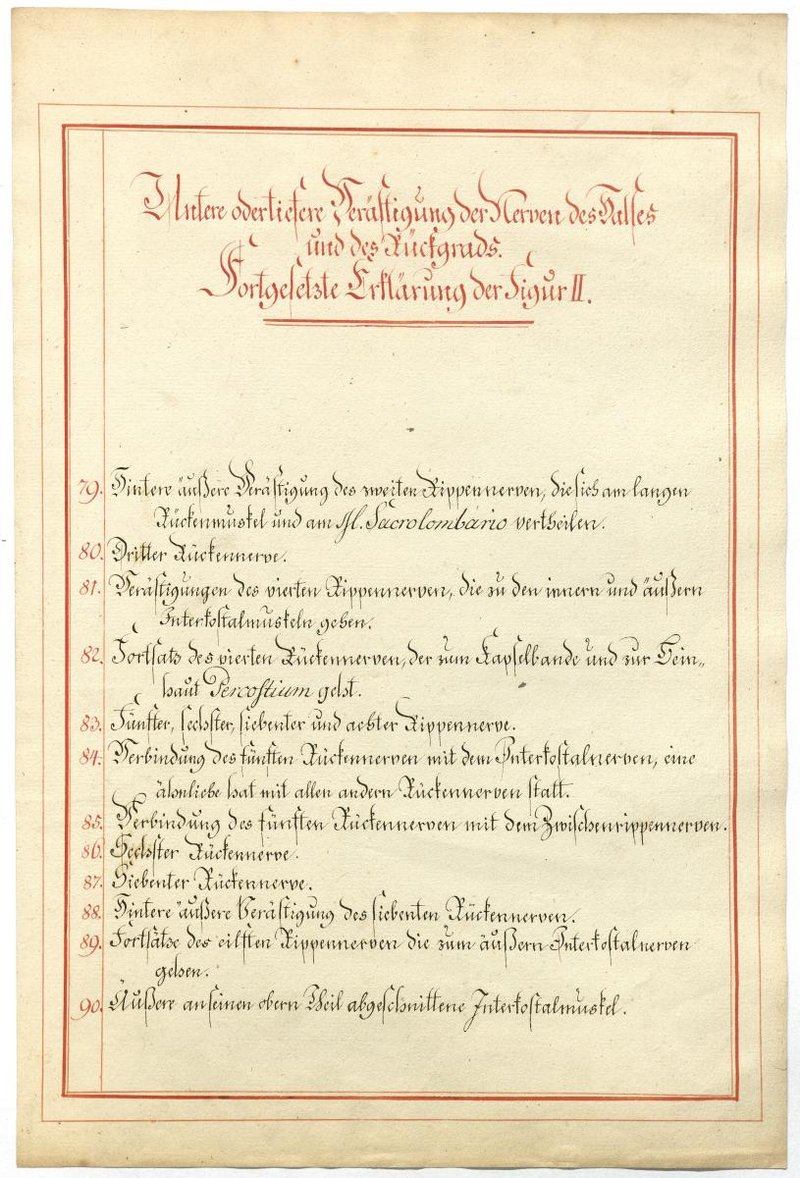 Untere oder tiefere Verästigung der Nerven des Halses
und des Rückgrads.
Fortgesetzte Erklärung der Figur II.
79. Hintere äußere Verästigung des zweiten Rippennerven, die sich am langen
Rückenmuskel und am M. Sacrolombario vertheilen.
80. Dritter Rückennerve.
81. Verästigungen des vierten Rippennerven, die zu den innern und äußern
Interkostalmuskeln gehen.
82. Fortsatz des vierten Rückennerven, der zum Kapselbande und zur Bein„
haut Percostium geht.
83. Fünfter, sechster, siebenter und achter Rippennerve.
84. Verbindung des fünften Rückennerven mit dem Interkostalnerven, eine
ähnliche hat mit allen andern Rückennerven statt.
85. Verbindung des fünften Rückennerven mit dem Zwischenrippennerven.
86. Sechster Rückennerve.
87. Siebenter Rückennerve.
88. Hintere äußere Verästigung des siebenten Rückennerven.
89. Fortsätze des eilften Rippennerven die zum äußern Interkostalnerven
gehen.
90. Äußere an seinen obern Theil abgeschnittene Interkostalmuskel.